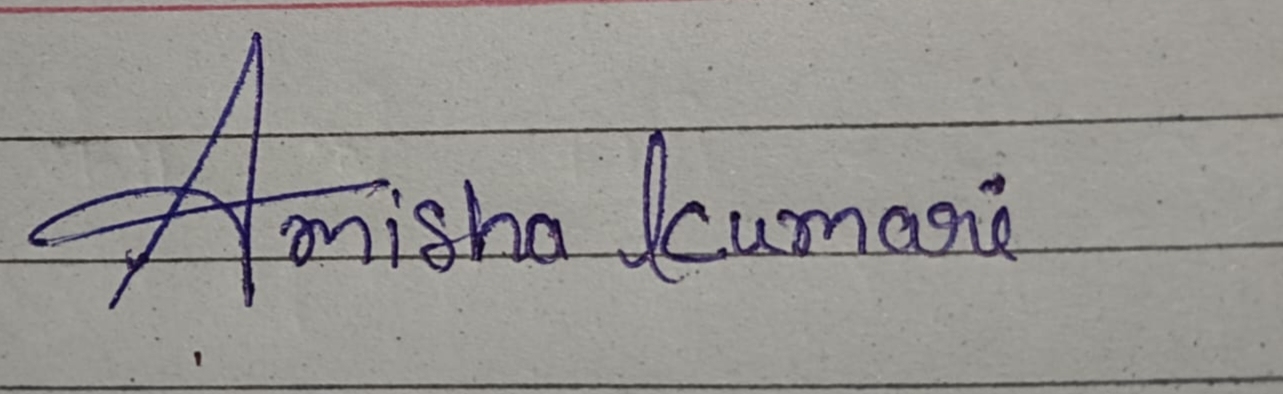 Amisha kumari